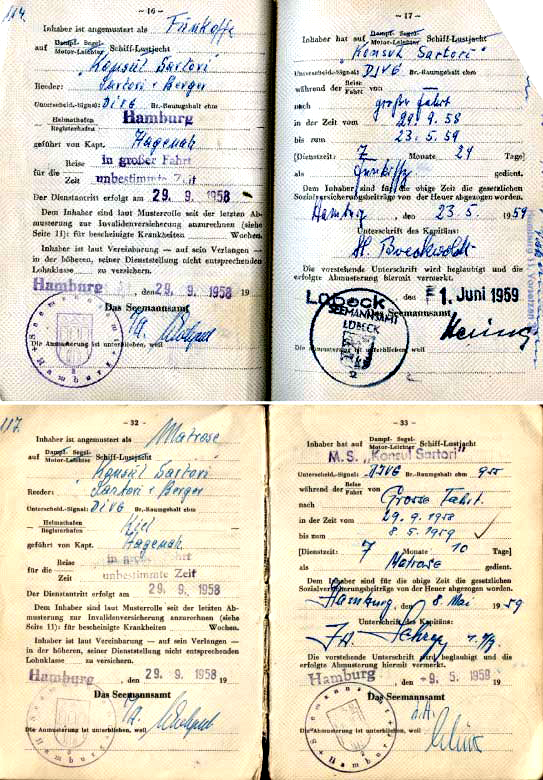 114.
— 16 —
Inhaber ist angemustert als Funkoffz
auf Dampf- Segel- Motor-Leichter Schiff-Lustjacht
„Konsul Sartori“
Reeder: Sartori + Berger
Unterscheid.-Signal: DIVG Br.-Raumgehalt cbm
Heimathafen Registerhafen Hamburg
geführt von Kapt. Hagenah
für die Reise in großer Fahrt
Zeit unbestimmte Zeit
Der Dienstantritt erfolgt am 29. 9. 1958
Dem Inhaber sind laut Musterrolle seit der letzten Ab-
musterung zur Invalidenversicherung anzurechnen (siehe
Seite 11): für bescheinigte Krankheiten Wochen.
Inhaber ist laut Vereinbarung — auf sein Verlangen —
in der höheren, seiner Dienststellung nicht entsprechenden
Lohnklasse zu versichern.
Hamburg, den 29. 9. 1958 19
Das Seemannsamt
Die Anmusterung ist unterblieben, weil
Seemannsamt Hamburg
— 17 —
Inhaber hat auf Dampf- Segel- Motor-Leichter Schiff-Lustjacht
„Konsul Sartori“
Unterscheid.-Signal: DIVG Br.-Raumgehalt cbm
während der Reise Fahrt von
nach große Fahrt
in der Zeit vom 29. 9. 58
bis zum 23. 5. 59
[Dienstzeit: 7 Monate 24 Tage]
als Funkoffz gedient.
Dem Inhaber sind für die obige Zeit die gesetzlichen
Sozialversicherungsbeiträge von der Heuer abgezogen worden.
Hamburg, den 23. 5. 1959
Unterschrift des Kapitäns:
Die vorstehende Unterschrift wird beglaubigt und die
erfolgte Abmusterung hiermit vermerkt.
Lübeck, den 1. Juni 1959
Das Seemannsamt
SEEMANNSAMT LÜBECK 2
Die Abmusterung ist unterblieben, weil
117.
— 32 —
Inhaber ist angemustert als Matrose
auf Dampf- Segel- Motor-Leichter Schiff-Lustjacht
Konsul Sartori
Reeder: Sartori + Berger
Unterscheid.-Signal: DIVG Br.-Raumgehalt cbm
Heimathafen Registerhafen Kiel
geführt von Kapt. Hagenah
für die Reise in großer Fahrt
Zeit unbestimmte Zeit
Der Dienstantritt erfolgt am 29. 9. 1958
Dem Inhaber sind laut Musterrolle seit der letzten Ab-
musterung zur Invalidenversicherung anzurechnen (siehe
Seite 11): für bescheinigte Krankheiten Wochen.
Inhaber ist laut Vereinbarung — auf sein Verlangen —
in der höheren, seiner Dienststellung nicht entsprechenden
Lohnklasse zu versichern.
Hamburg, den 29. 9. 1958 19
Das Seemannsamt
Die Anmusterung ist unterblieben, weil
Seemannsamt Hamburg
— 33 —
Inhaber hat auf Dampf- Segel- Motor-Leichter Schiff-Lustjacht
M.S. „Konsul Sartori“
Unterscheid.-Signal: DIVG Br.-Raumgehalt cbm
während der Reise Fahrt von
nach Grosse Fahrt
in der Zeit vom 29. 9. 1958
bis zum 8. 5. 1959
[Dienstzeit: 7 Monate 10 Tage]
als Matrose gedient.
Dem Inhaber sind für die obige Zeit die gesetzlichen
Sozialversicherungsbeiträge von der Heuer abgezogen worden.
Hamburg, den 8. Mai 1959
Unterschrift des Kapitäns:
Die vorstehende Unterschrift wird beglaubigt und die
erfolgte Abmusterung hiermit vermerkt.
Hamburg, den -9. 5. 1959 19
Das Seemannsamt
Die Abmusterung ist unterblieben, weil
Seemannsamt Hamburg